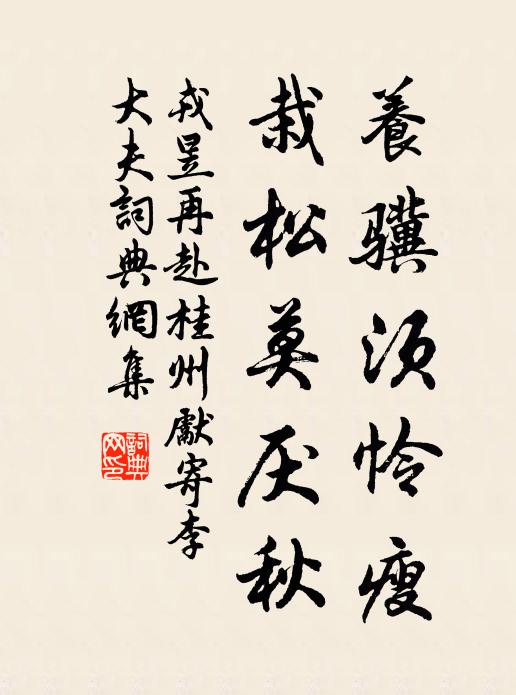 養驥須怜瘦
栽松莫厌秋
戎昱再赴桂州獻寄李
大夫詞典網集
詞典
网印